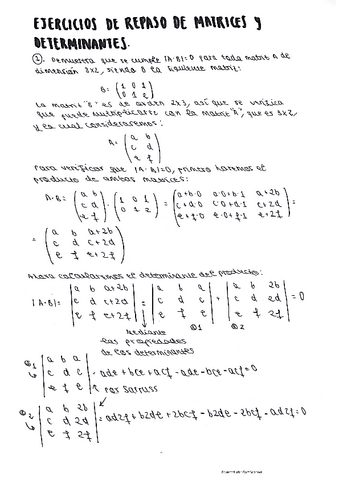 EJERCICIOS DE REPASO DE MATRICES Y
DETERMINANTES.
①. Demuestra que se cumple |A·B|=0 para toda matriz A de
dimensión 3x2, siendo B la siguiente matriz:
B= (1 0 1
0 1 2)
La matriz "B" es de orden 2x3, así que se verifica
que puede multiplicarse con la matriz "A", que es 3x2,
y la cual consideraremos:
A= (a b
c d
e f)
Para verificar que |A·B|=0, primero haremos el
producto de ambas matrices:
A·B= (a b
c d
e f) · (1 0 1
0 1 2) = (a+b·0 a·0+b·1 a+2b
c+d·0 c·0+d·1 c+2d
e+f·0 e·0+f·1 e+2f) =
= (a b a+2b
c d c+2d
e f e+2f)
Ahora calcularemos el determinante del producto:
|A·B|= |a b a+2b
c d c+2d
e f e+2f| = |a b a
c d c
e f e| + |a b 2b
c d 2d
e f 2f| = 0
①1 ①2
Mediante
las propiedades
de los determinantes
①1 |a b a
c d c
e f e| = ade+bce+acf-ade-bce-acf=0
Por Sarrus
①2 |a b 2b
c d 2d
e f 2f| = ad2f+b2de+2bcf-b2de-2bcf-ad2f=0